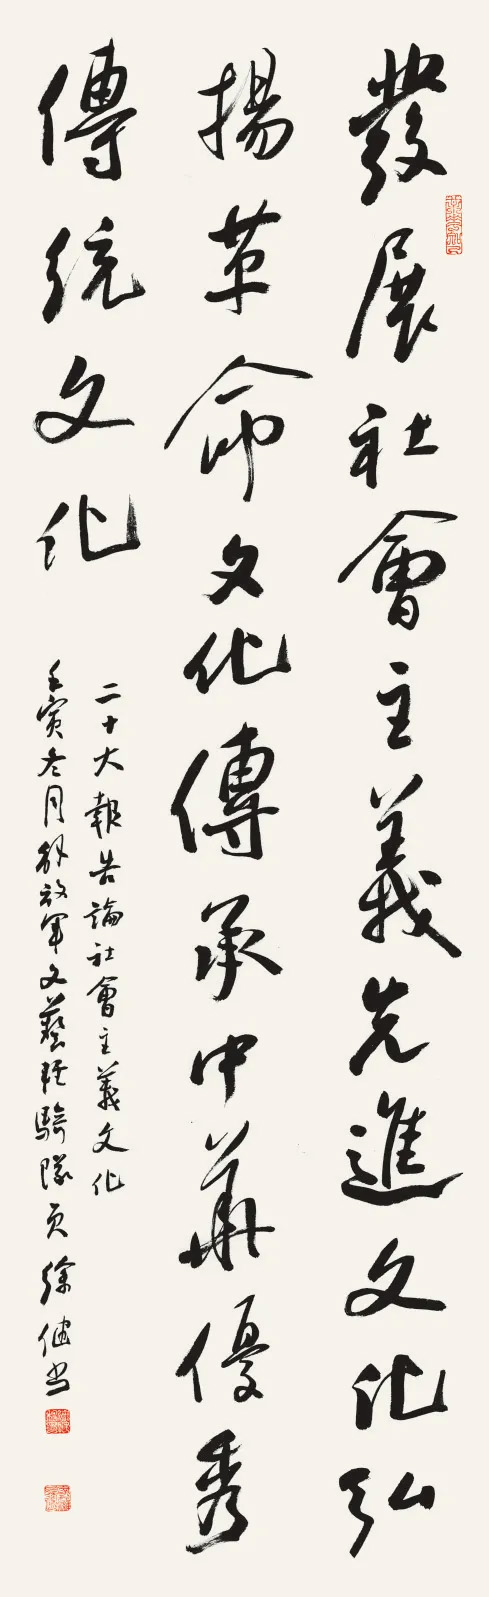 發展社會主義先進文化弘
揚革命文化傳承中華優秀
傳統文化
二十大報告論社會主義文化
壬寅冬月解放軍文藝輕騎隊員徐健書